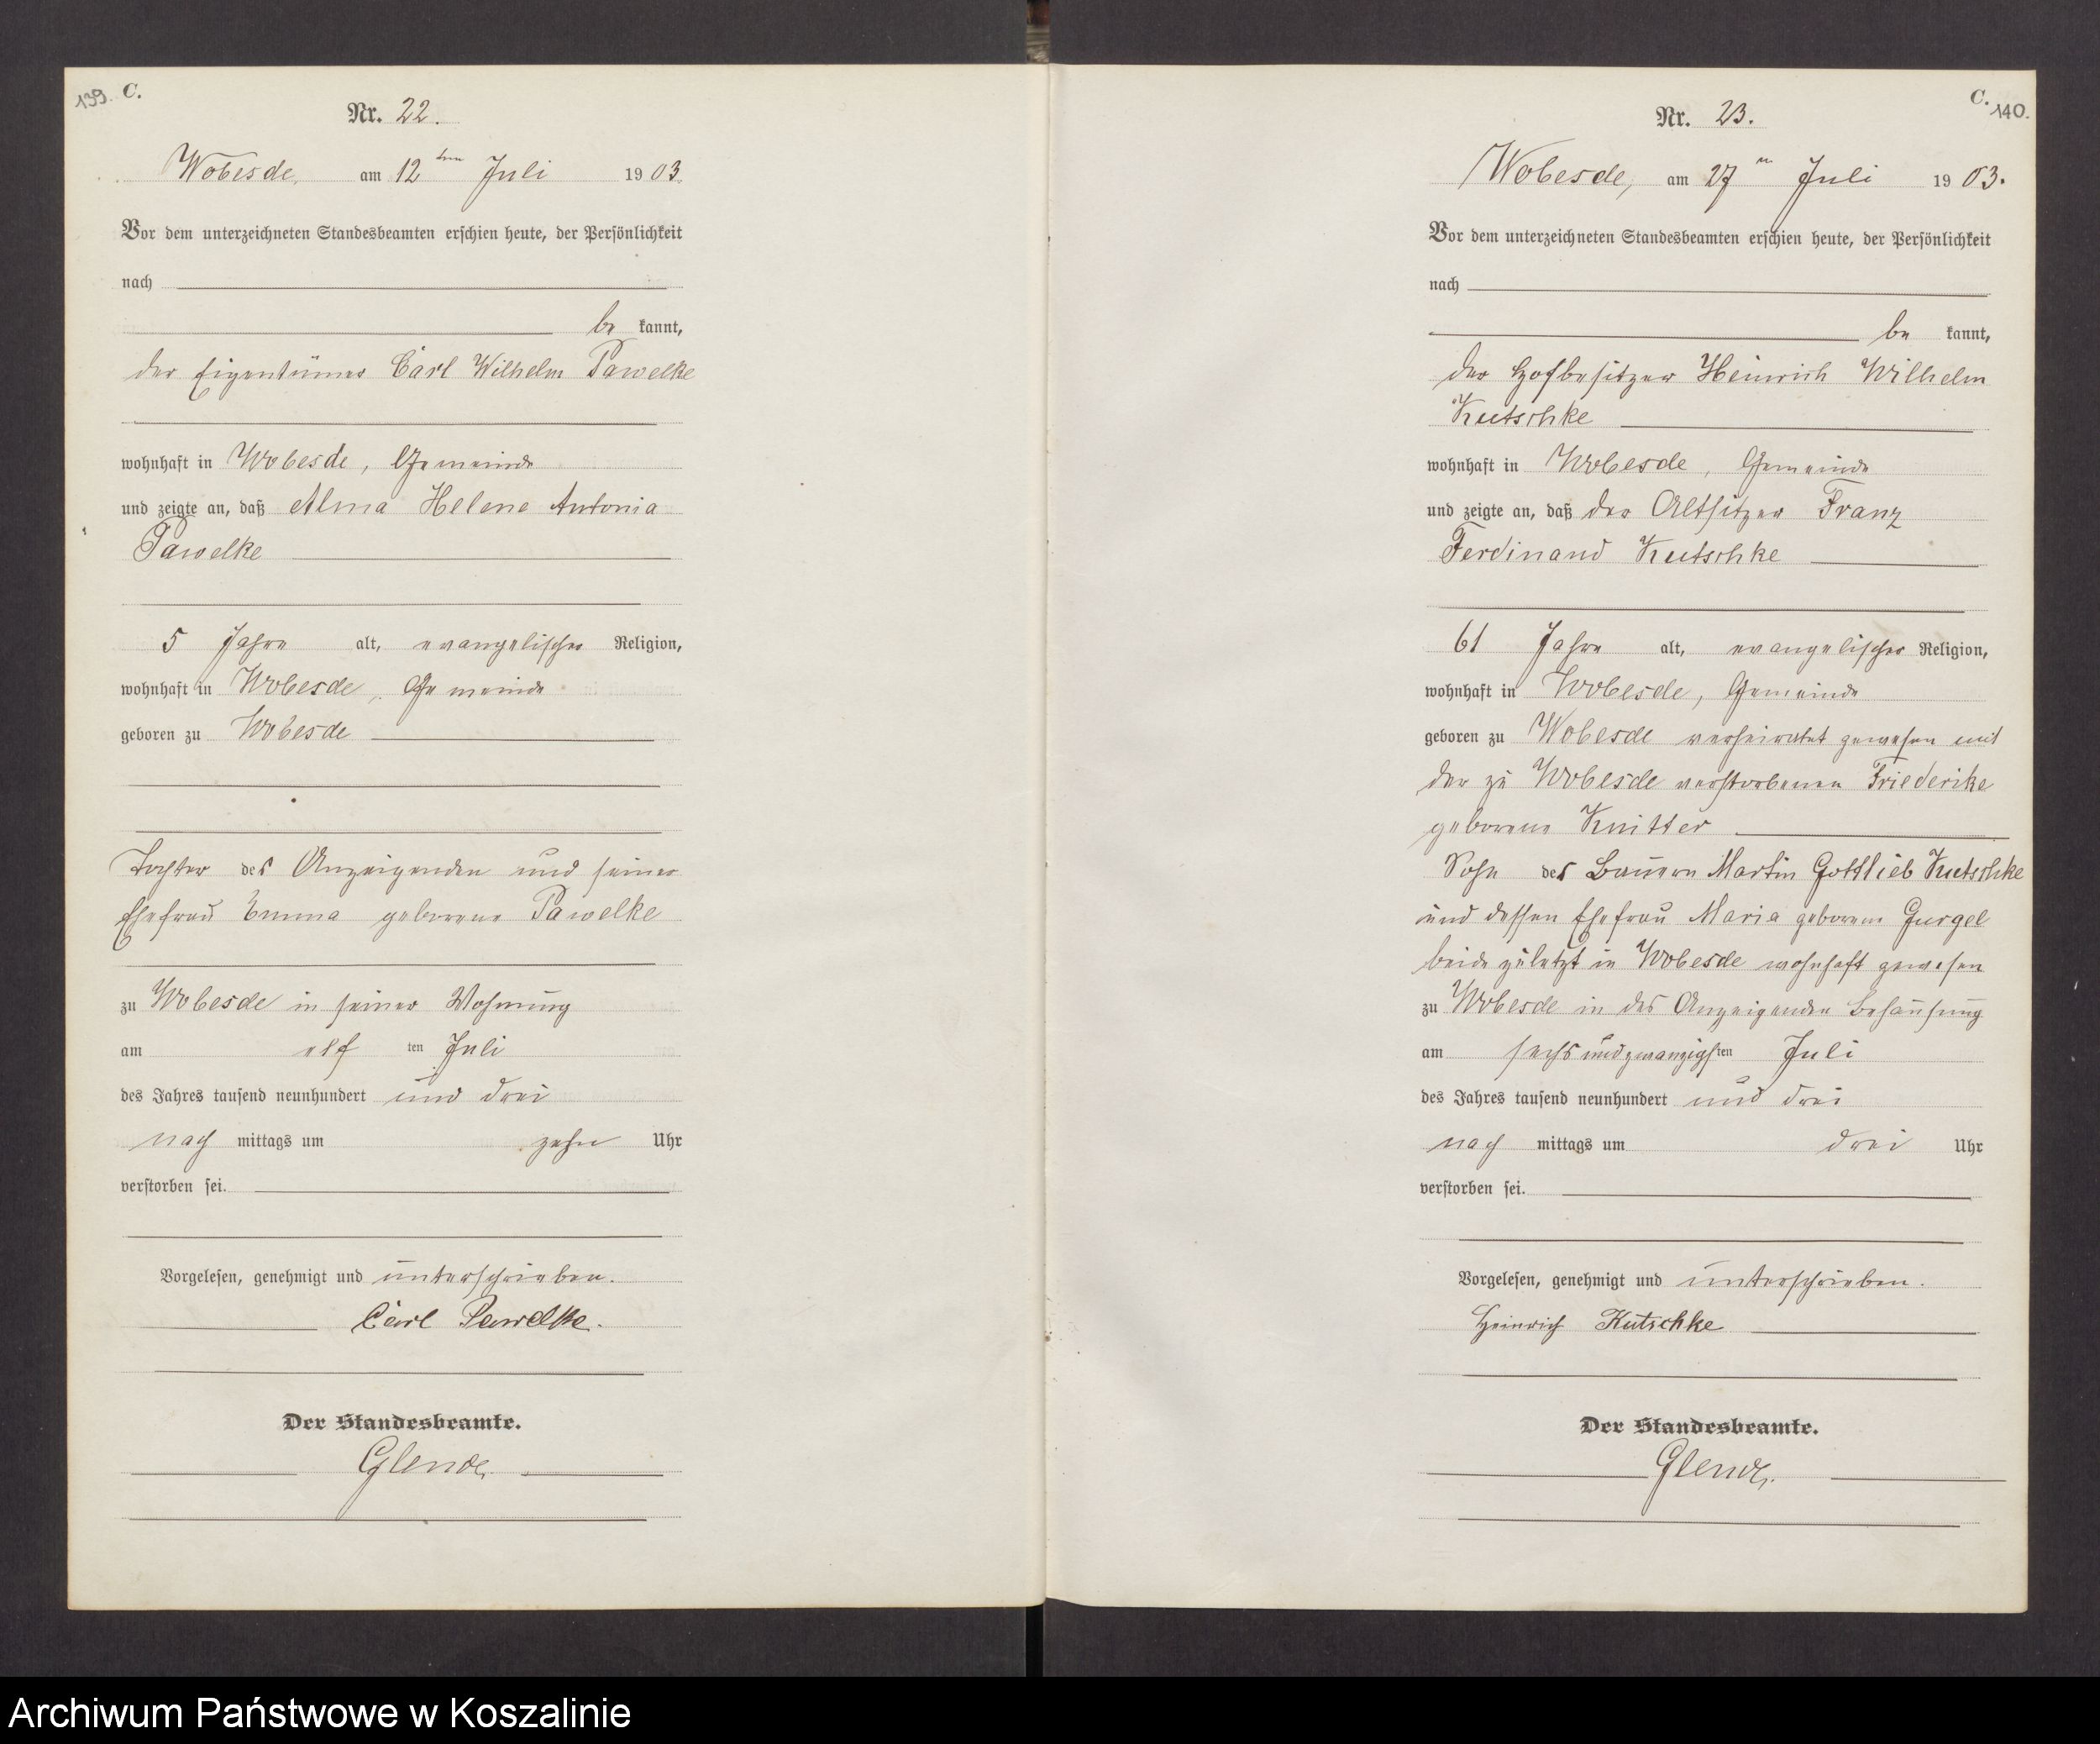 139. C.
Nr. 22.
Wobesde, am 12ten Juli 1903
Vor dem unterzeichneten Standesbeamten erschien heute, der Persönlichkeit
nach
be kannt,
der Eigentümer Carl Wilhelm Pawelke
wohnhaft in Wobesde, Gemeinde
und zeigte an, daß Alma Helene Antonia
Pawelke
5 Jahre alt, evangelischer Religion,
wohnhaft in Wobesde, Gemeinde
geboren zu Wobesde
Tochter des Anzeigenden und seiner
Ehefrau Emma geborene Pawelke
zu Wobesde in seiner Wohnung
am elf ten Juli
des Jahres tausend neunhundert und drei
nach mittags um zehn Uhr
verstorben sei.
Vorgelesen, genehmigt und unterschrieben.
Carl Pawelke.
Der Standesbeamte.
Glende.
C. 140.
Nr. 23.
Wobesde, am 27n Juli 1903.
Vor dem unterzeichneten Standesbeamten erschien heute, der Persönlichkeit
nach
be kannt,
der Hofbesitzer Heinrich Wilhelm
Kutschke
wohnhaft in Wobesde, Gemeinde
und zeigte an, daß der Altsitzer Franz
Ferdinand Kutschke
61 Jahre alt, evangelischer Religion,
wohnhaft in Wobesde, Gemeinde
geboren zu Wobesde verheiratet gewesen mit
der zu Wobesde verstorbenen Friederike
geborene Knitter
Sohn des Bauern Martin Gottlieb Kutschke
und dessen Ehefrau Maria geborene Gurgel
beide zuletzt in Wobesde wohnhaft gewesen
zu Wobesde in des Anzeigenden Behausung
am sechsundzwanzigsten Juli
des Jahres tausend neunhundert und drei
nach mittags um drei Uhr
verstorben sei.
Vorgelesen, genehmigt und unterschrieben.
Heinrich Kutschke
Der Standesbeamte.
Glende.
Archiwum Państwowe w Koszalinie